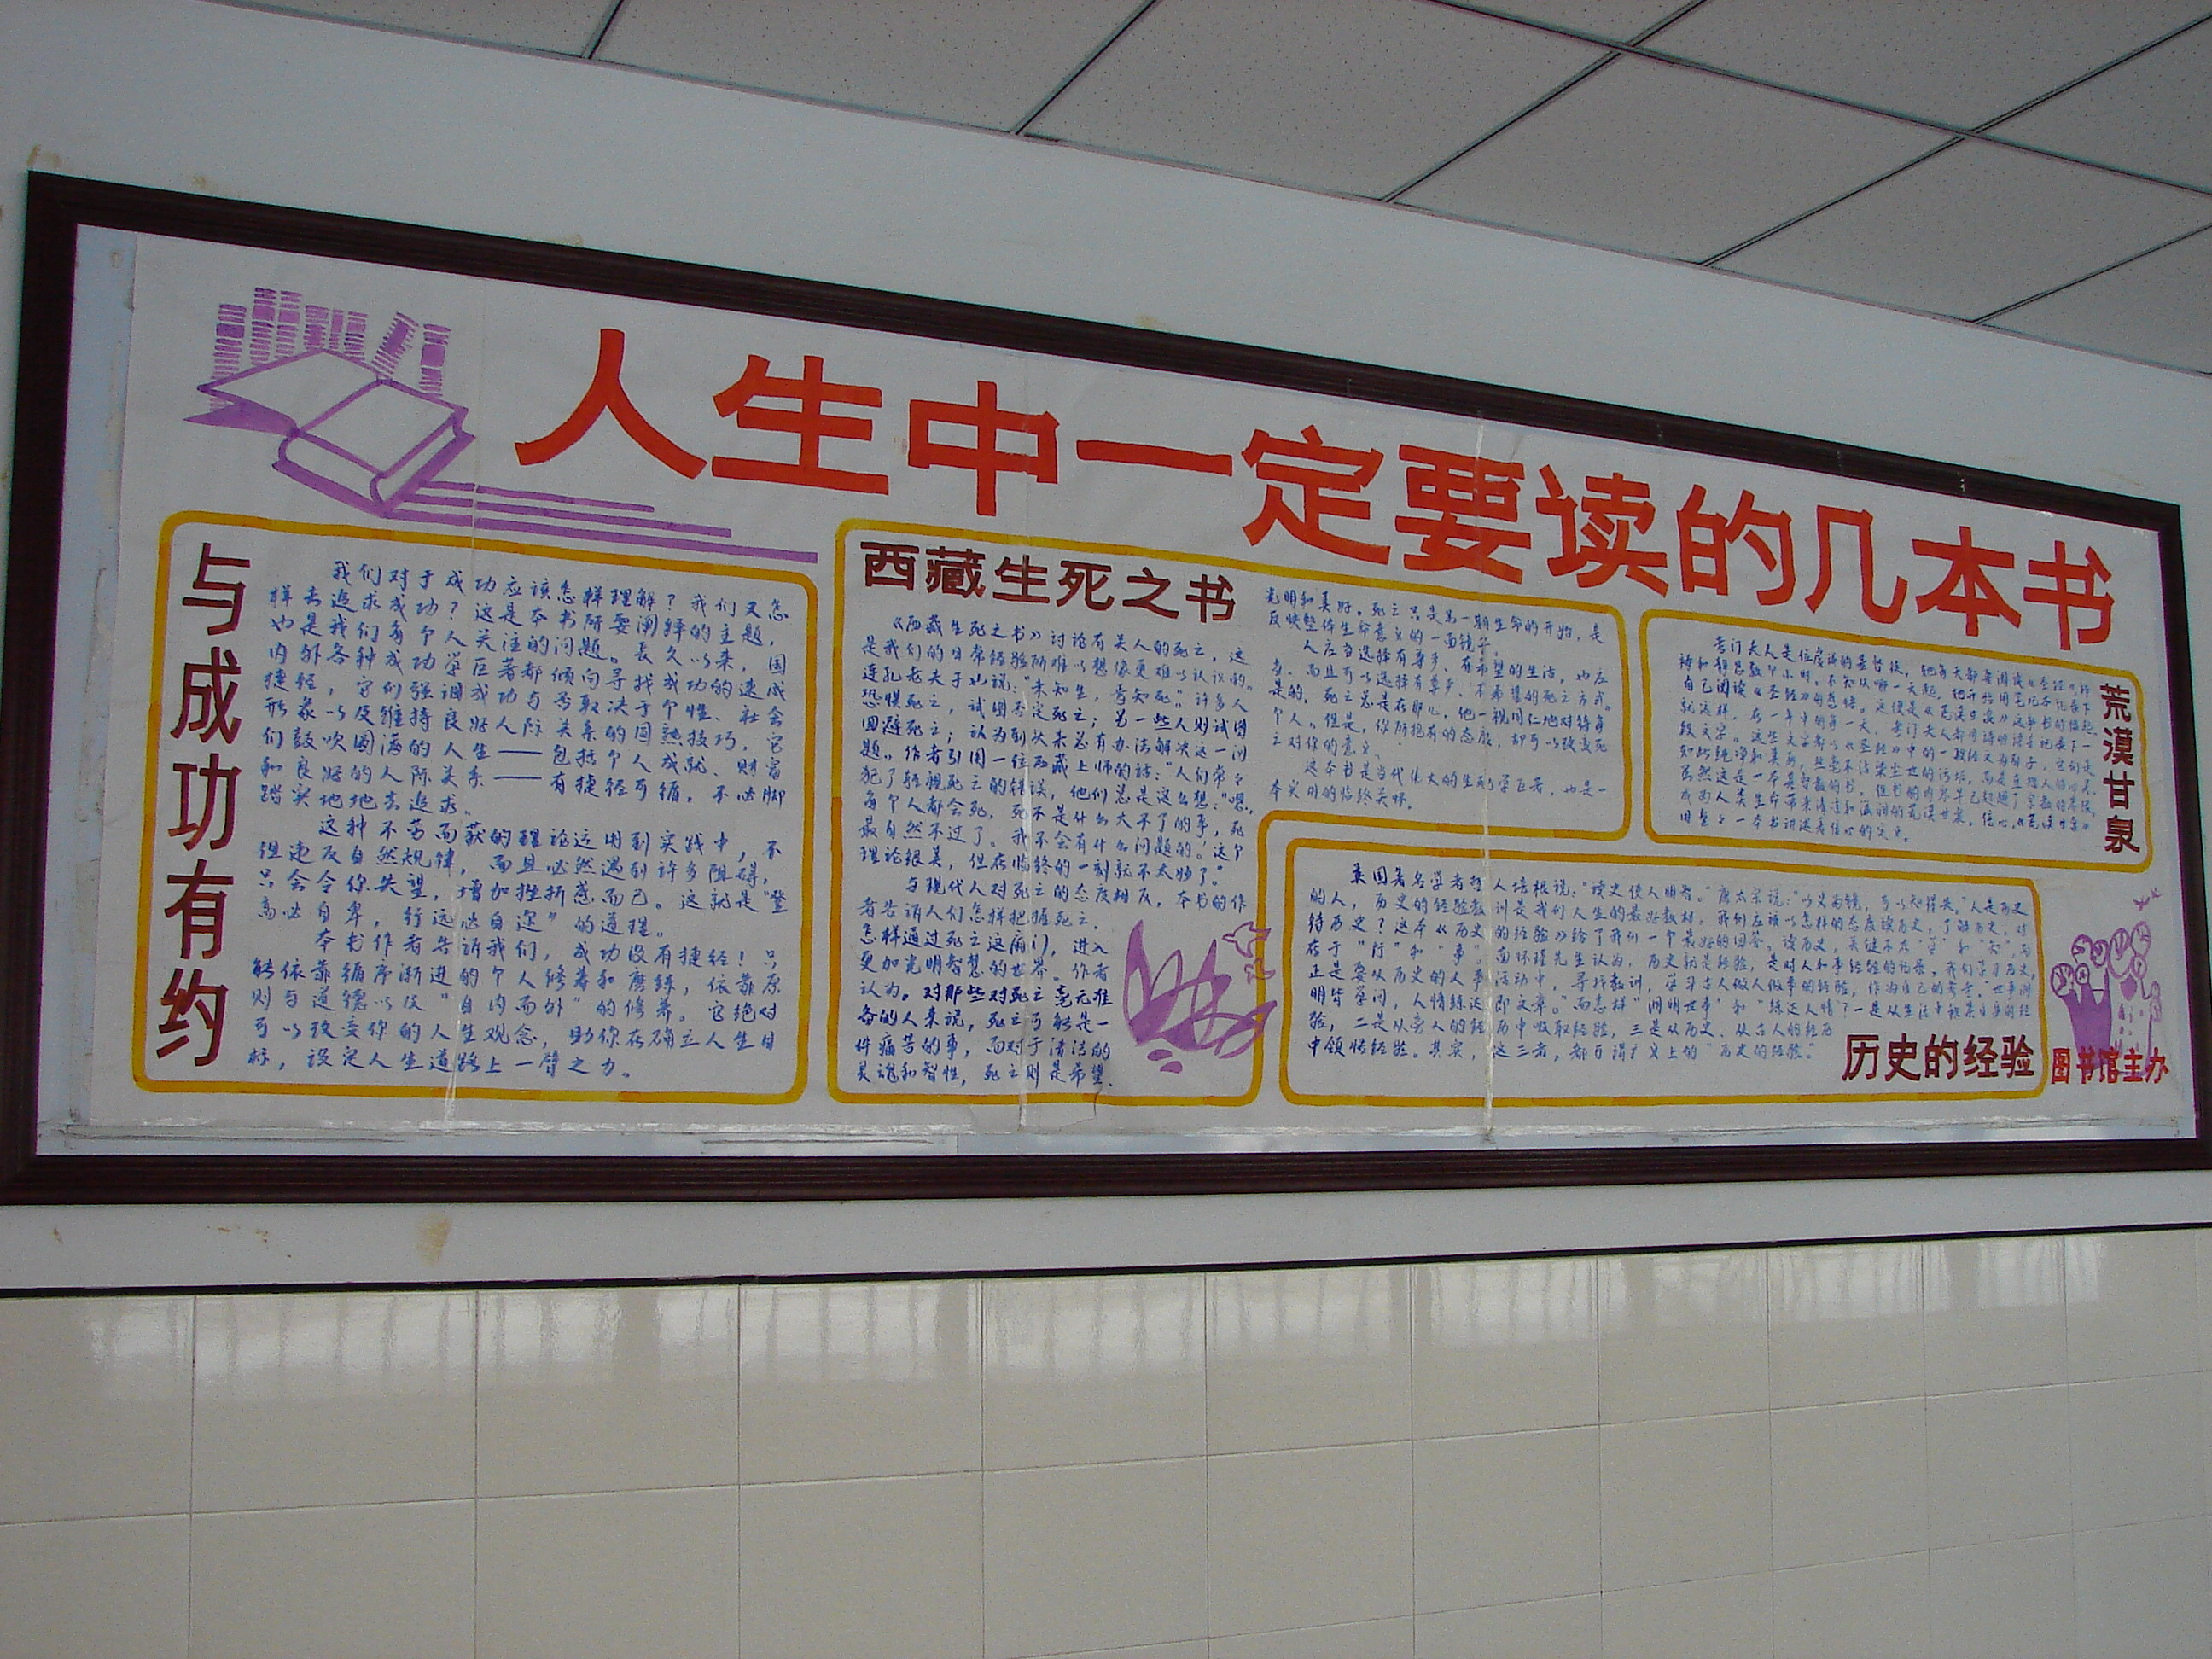 人生中一定要读的几本书
与成功有约
我们对于成功应该怎样理解？我们又怎
样去追求成功？这是本书所要阐释的主题，
也是我们每个人关注的问题。长久以来，国
内外各种成功学巨著都倾向寻找成功的速成
捷径，它们强调成功与否取决于个性、社会
形象以及维持良好人际关系的圆熟技巧，它
们鼓吹圆满的人生——包括个人成就、财富
和良好的人际关系——有捷径可循，不必脚
踏实地地去追求。
这种不劳而获的理论运用到实践中，不
但违反自然规律，而且必然遇到许多阻碍，
只会令你失望，增加挫折感而已。这就是“登
高必自卑，行远必自迩”的道理。
本书作者告诉我们，成功没有捷径！只
能依靠循序渐进的个人修养和磨练，依靠原
则与道德以及“自内而外”的修养。它绝对
可以改变你的人生观念，助你在确立人生目
标，设定人生道路上一臂之力。
西藏生死之书
《西藏生死之书》讨论有关人的死亡，这
是我们的日常经验所难以想像更难以认议的。
连孔老夫子也说：“未知生，焉知死。”许多人
恐惧死亡，试图否定死亡；另一些人则试图
回避死亡；认为到状未总有办法解决这一问
题。作者引用一位西藏上师的话：“人们常々
犯了轻视死亡的错误，他们总是这么想：‘嗯，
每个人都会死，死不是什么大不了的事，死
最自然不过了。我不会有什么问题的。’这个
理论很美，但在临终的一刻就不太妙了。”
与现代人对死亡的态度相反，本书的作
者告诉人们怎样把握死亡，
怎样通过死亡这扇门，进入
更加光明智慧的世界。作者
认为。对那些对死亡毫无准
备的人来说，死亡可能是一
件痛苦的事，而对于清洁的
灵魂和智性，死亡则是希望、
光明和美好。死亡只是另一期生命的开始，是
反映整体生命意义的一面镜子。
人应当选择有尊严、有希望的生活，也应
当、而且可以选择有尊严、有希望的死亡方式。
是的，死亡总是在那儿，他一视同仁地对待每
个人。但是，你所抱有的态度，却可以改变死
亡对你的意义。
这本书是当代伟大的生死学巨著，也是一
本实用的临终关怀。
荒漠甘泉
自己阅读《圣经》的感悟。这便是《荒漠甘泉》这本书的缘起。
虽然这是一本基督教的书，但书的内界早已超越了宗教的界限，
用整个一本书讲述着信心的定义。
英国著名学者哲人培根说：“读史使人明智。”唐太宗说：“以史为镜，可以知得失。”人是历史
的人，历史的经验教训是我们人生的最好教材，我们应该以怎样的态度读历史，了解历史，对
待历史？这本《历史的经验》给了我们一个最好的回答。读历史，关键不在“学”和“知”，而
在于“行”和“事”。南怀瑾先生认为，历史就是经验，是对人和事经验的记录，我们学习历史，
正是要从历史的人事活动中，寻找教训，学习古人做人做事的经验，作为自己的参考。“世事洞
明皆学问，人情练达即文章。”而怎样“洞明世事”和“练达人情”？一是从生活中积累自身的经
验，二是从旁人的经历中吸取经验，三是从历史、从古人的经历
中领悟经验。其实，这三者，都可谓广义上的“历史的经验”
历史的经验
图书馆主办